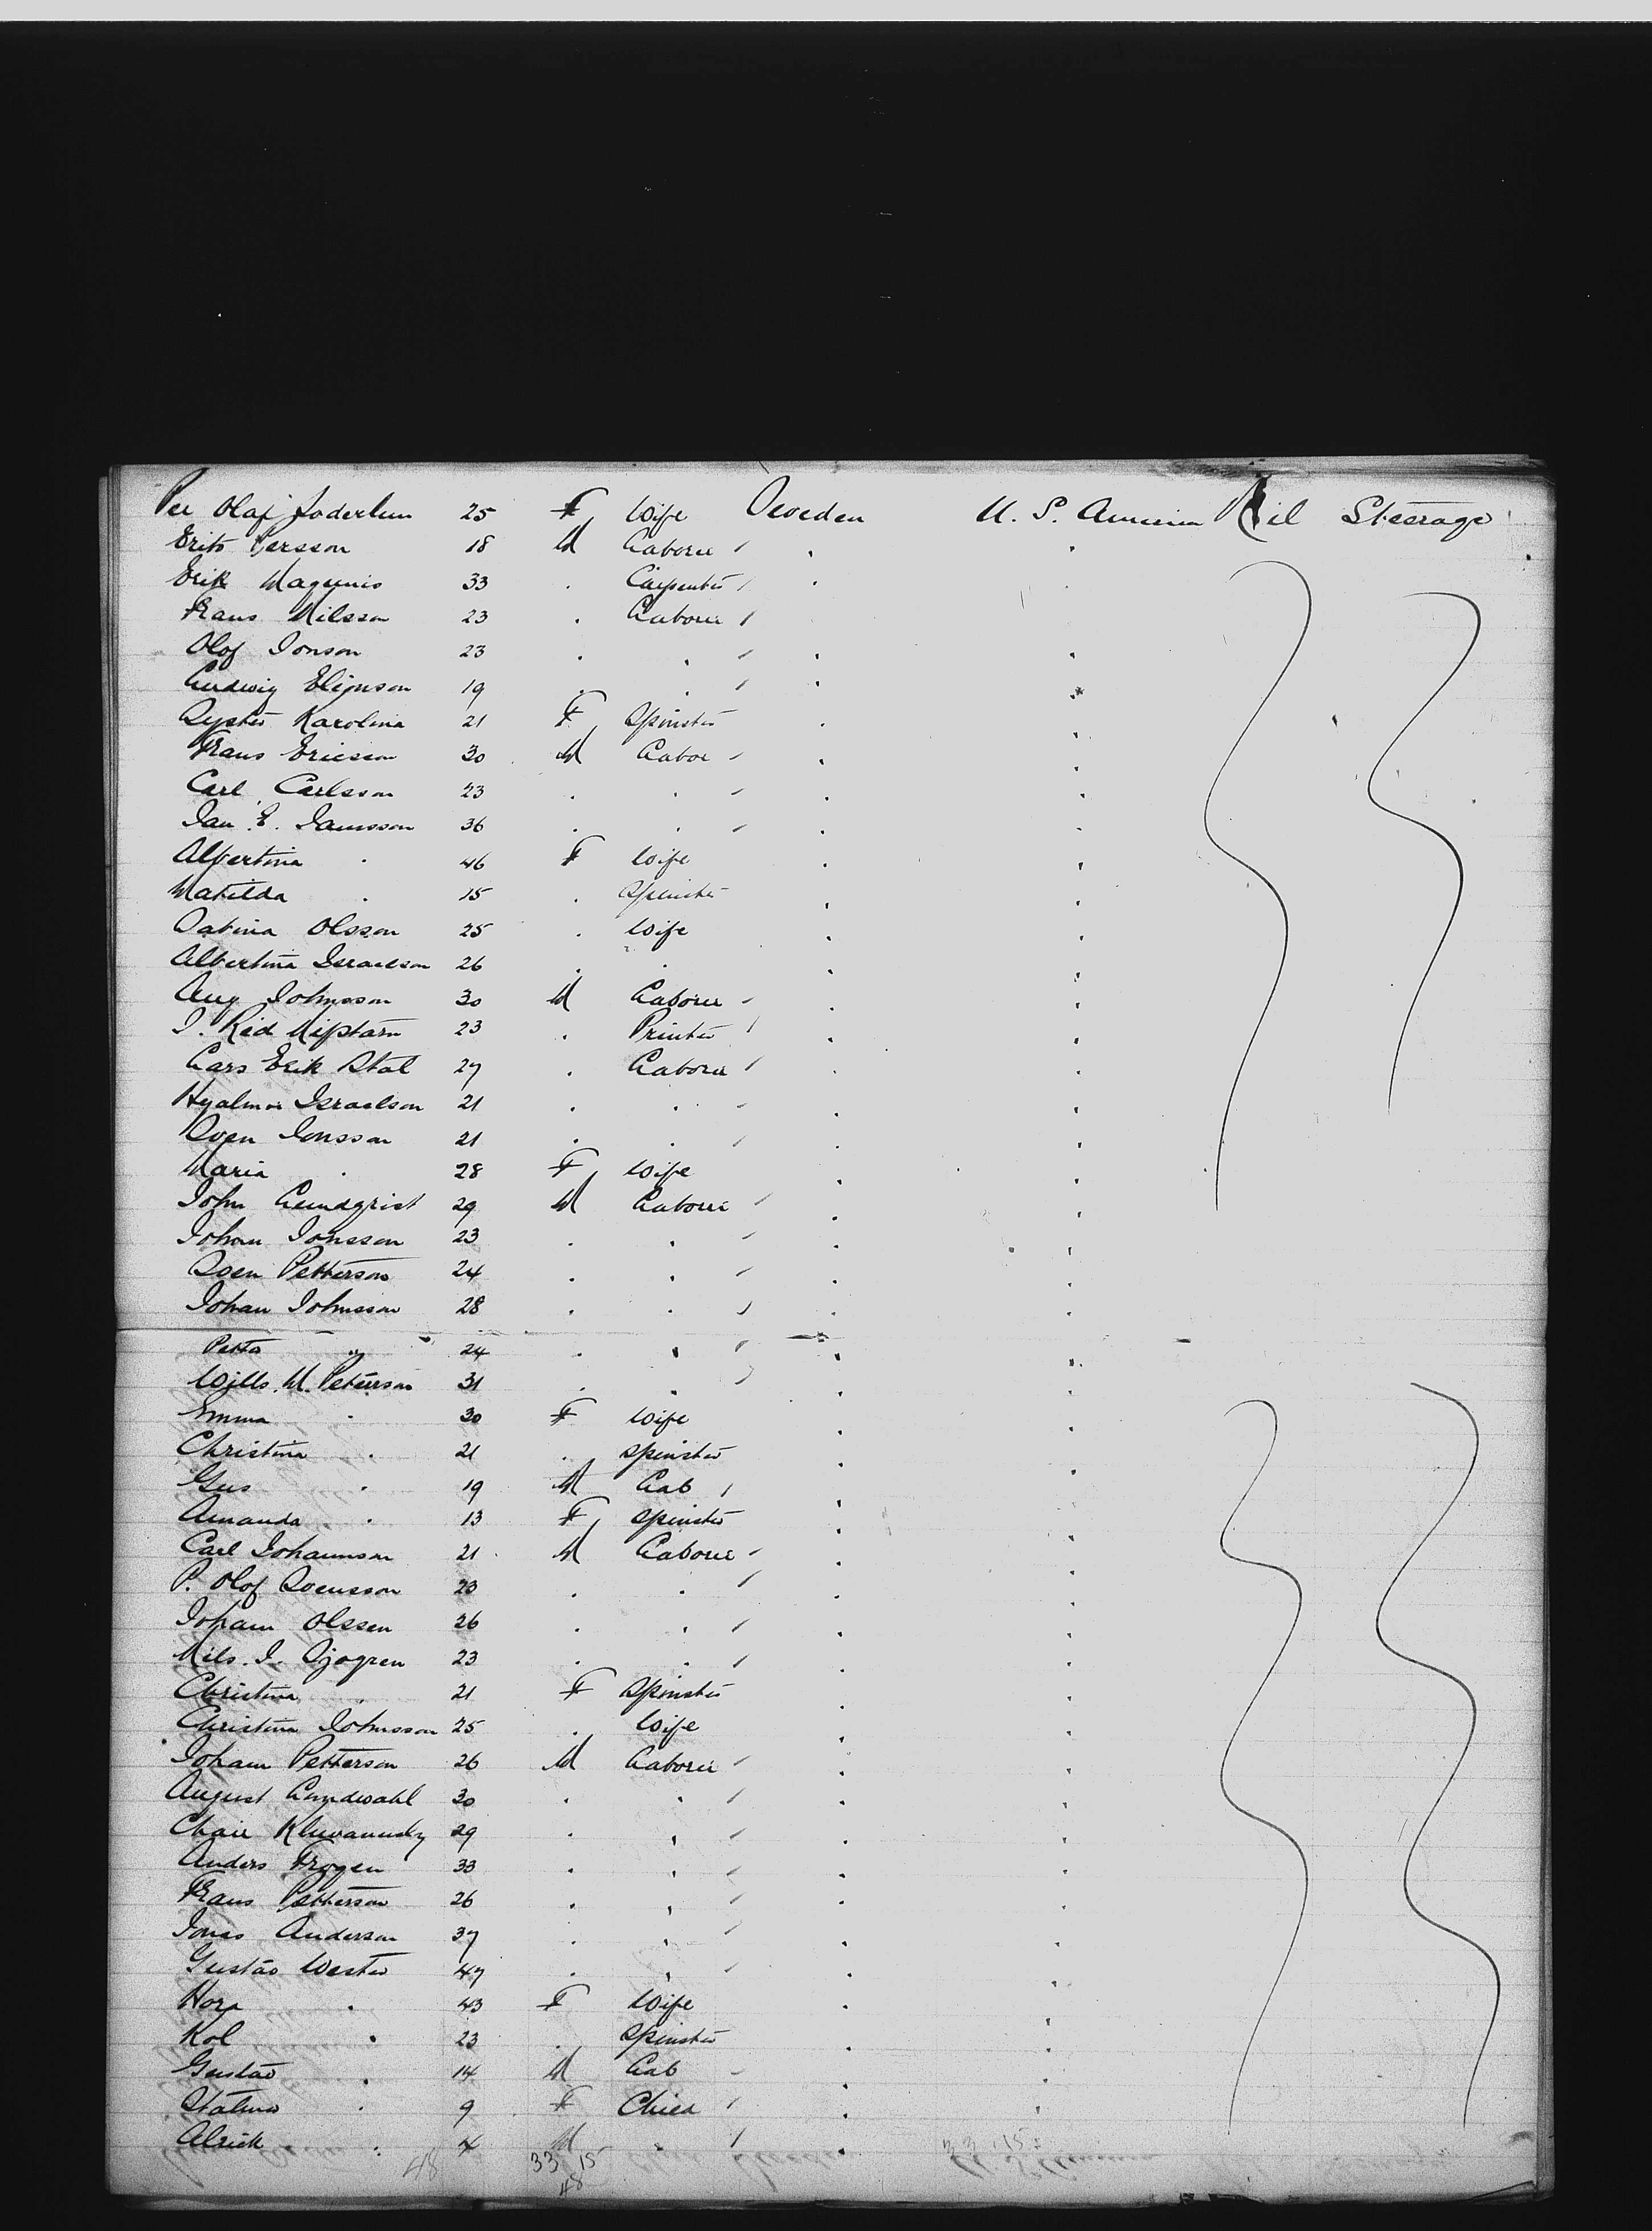 Per Olaf Soderlun 25 F Wife Sweden U.S. America Nil Steerage
Erik Persson 18 M Laborer " "
Erik Magunis 33 " Carpenter " "
Frans Nilsson 23 " Laborer
Olof Jonson 23 " " " "
Ludwig Elijnson 19 " " " "
Syster Karolina 21 F Spinster " "
Frans Ericson 30 M Labor " "
Carl Carlsson 23 " " " "
Jan E. Jansson 36 " " " "
Albertina " 46 F Wife " "
Matilda " 15 " Spinster " "
Sabina Olsson 25 " Wife " "
Albertina Israelson 26 " " " "
Aug Johnsson 30 M Laborer " "
J. Rid 23 " Printer " "
Lars Erik Stal 27 " Laborer " "
Hyalmar Israelson 21 " " " "
Sven Jonsson 21 " " " "
Maria " 28 F Wife " "
John Lundqrist 29 M Laborer " "
Johan Jonsson 23 " " " "
Sven Petterson 24 " " " "
Johan Johnsson 28 " " " "
Petta " 24 " " " "
Wills. M. Peterson 31 " " " "
Emma " 30 F Wife " "
Christina " 21 " Spinster " "
Gus " 19 M Lab " "
Amanda " 13 F Spinster " "
Carl Johannson 21 M Laborer " "
P. Olof Svensson 23 " " " "
Johan Olssen 26 " " " "
Nils. J. Sjogren 23 " " " "
Christina " 21 F Spinster " "
Christina Johnsson 25 " Wife " "
Johan Petterson 26 M Laborer " "
August Lundwahl 30 " " " "
29 " " " "
Anders Frogen 33 " " " "
Frans Petterson 26 " " " "
Jonas Anderson 37 " " " "
Gustav Wester 47 " " " "
Hora " 43 F Wife " "
Kol " 23 " Spinster " "
Gustav " 14 M Lab " "
9 F Child " "
Alrick " 4 M " "
48 33 15
48